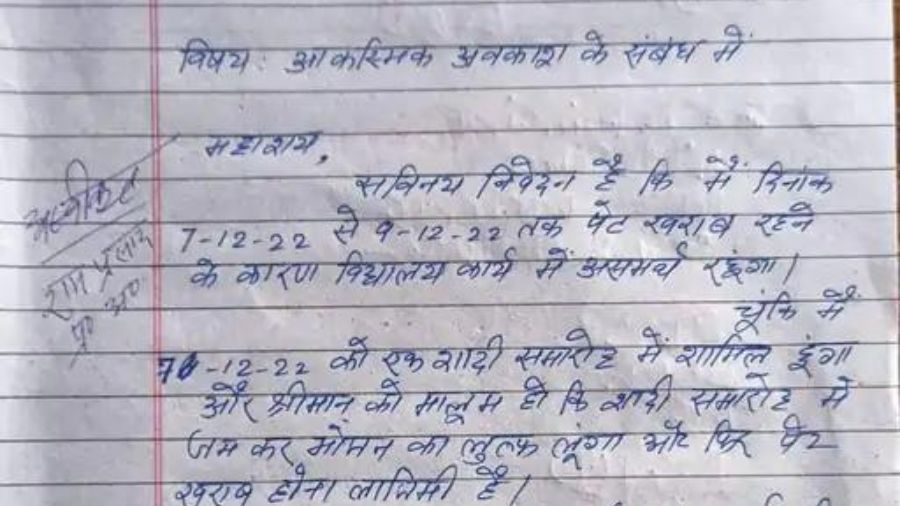 विषय: आकस्मिक अवकाश के संबंध में
महाशय,
सविनय निवेदन है कि मैं दिनांक
7-12-22 से 9-12-22 तक पेट खराब रहने
के कारण विद्यालय कार्य में असमर्थ रहूंगा।
चूंकि मैं
7-12-22 को एक शादी समारोह में शामिल हूंगा
और श्रीमान को मालूम हो कि शादी समारोह में
जम कर भोजन का लुत्फ लूंगा और फिर पेट
खराब होना लाजिमी है।
अस्वीकृत
राम प्रसाद
प्र० अ०